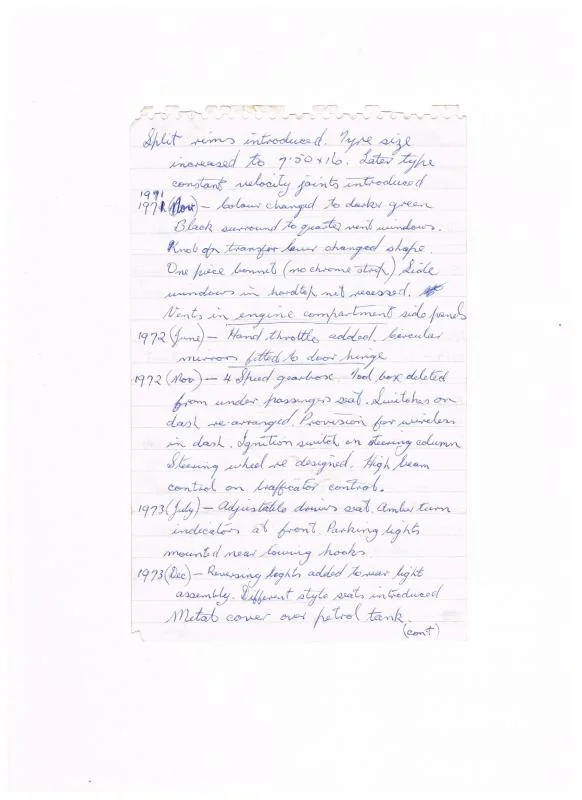 Split rims introduced. Tyre size
increased to 7.50 x 16. Later type
constant velocity joints introduced
1971
1971 (Nov) – Colour changed to darker green
Black surround to quarter vent windows.
Knob on transfer lever changed shape.
One piece bonnet (no chrome strip) Side
windows in hardtop not recessed.
Vents in engine compartment side panels
1972 (June) – Hand throttle added. Circular
mirrors fitted to door hinge
1972 (Nov) – 4 Speed gearbox. Tool box deleted
from under passengers seat. Switches on
dash re arranged. Provision for wireless
in dash. Ignition switch on steering column
Steering wheel re designed. High beam
control on trafficator control.
1973 (July) – Adjustable drivers seat. Amber turn
indicators at front. Parking lights
mounted near towing hooks.
1973 (Dec) – Reversing lights added to rear light
assembly. Different style seats introduced
Metal cover over petrol tank.
(cont)